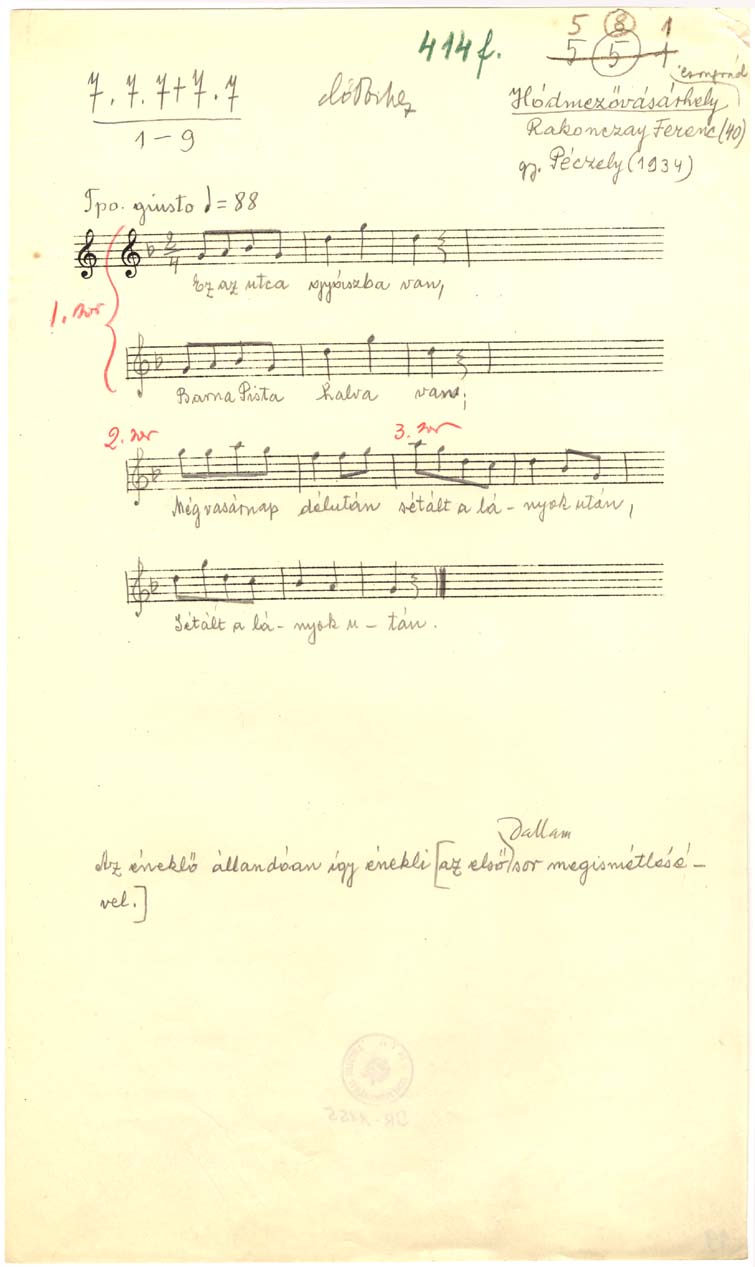 414f.
5 8 1
5 5 1
7. 7. 7+7. 7
1-9
Csongrád
Hódmezővásárhely
Rakonczay Ferenc (40)
gy. Péczely (1934)
Tpo. giusto ♩=88
2/4
1. sor
Ez az utca gyászba van,
Barna Pista halva van;
2. sor 3. sor
Még vasárnap délután sétált a lá - nyok után,
Sétált a lá - nyok u - tán.
Dallam
Az éneklő állandóan így énekli [az első sor megismétlésé-
vel.]